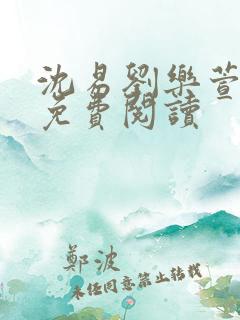 沈易劉樂萱
免費閱讀
鄭波
未经同意禁止转载